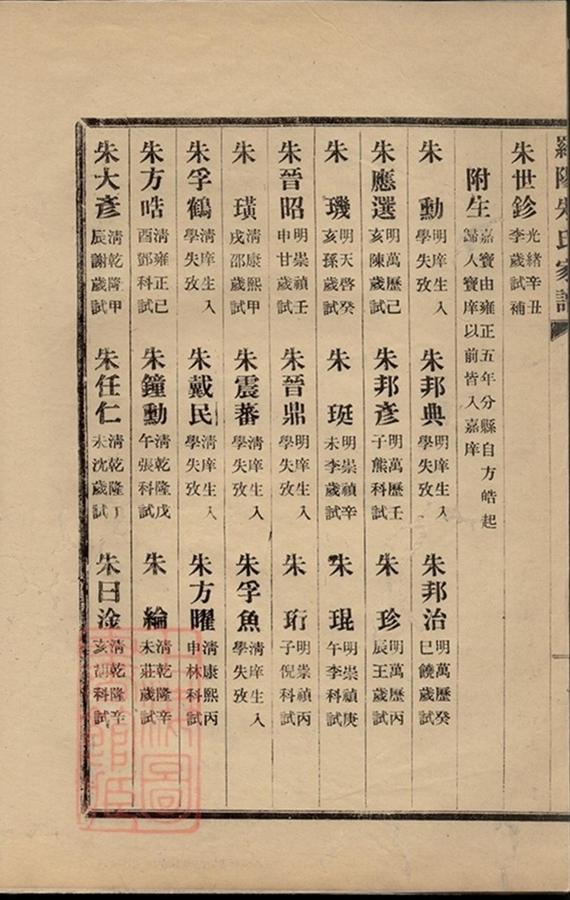 羅陽朱氏家譜
朱世鉁 光緒辛丑李歲試補
附生 嘉寶由雍正五年分縣自方皓起歸人寶庠以前皆入嘉庠
朱勳 明庠生入學失攷 朱邦典 明庠生入學失攷 朱邦治 明萬歷癸巳饒歲試
朱應選 明萬歷己亥陳歲試 朱邦彥 明萬歷壬子熊科試 朱珍 明萬歷丙辰王歲試
朱璣 明天啓癸亥孫歲試 朱珽 明崇禎辛未李歲試 朱琨 明崇禎庚午李科試
朱晉昭 明崇禎壬申甘歲試 朱晉鼎 明庠生入學失攷 朱珩 明崇禎丙子倪科試
朱璜 清康熙甲戌邵歲試 朱震蕃 清庠生入學失攷 朱孚魚 清庠生入學失攷
朱孚鶴 清庠生入學失攷 朱戴民 清庠生入學失攷 朱方曜 清康熙丙申林科試
朱方晧 清雍正己酉鄧科試 朱鐘勳 清乾隆戊午張科試 朱綸 清乾隆辛未莊歲試
朱大彥 清乾隆甲辰謝歲試 朱任仁 清乾隆丁未沈歲試 朱曰淦 清乾隆辛亥胡科試